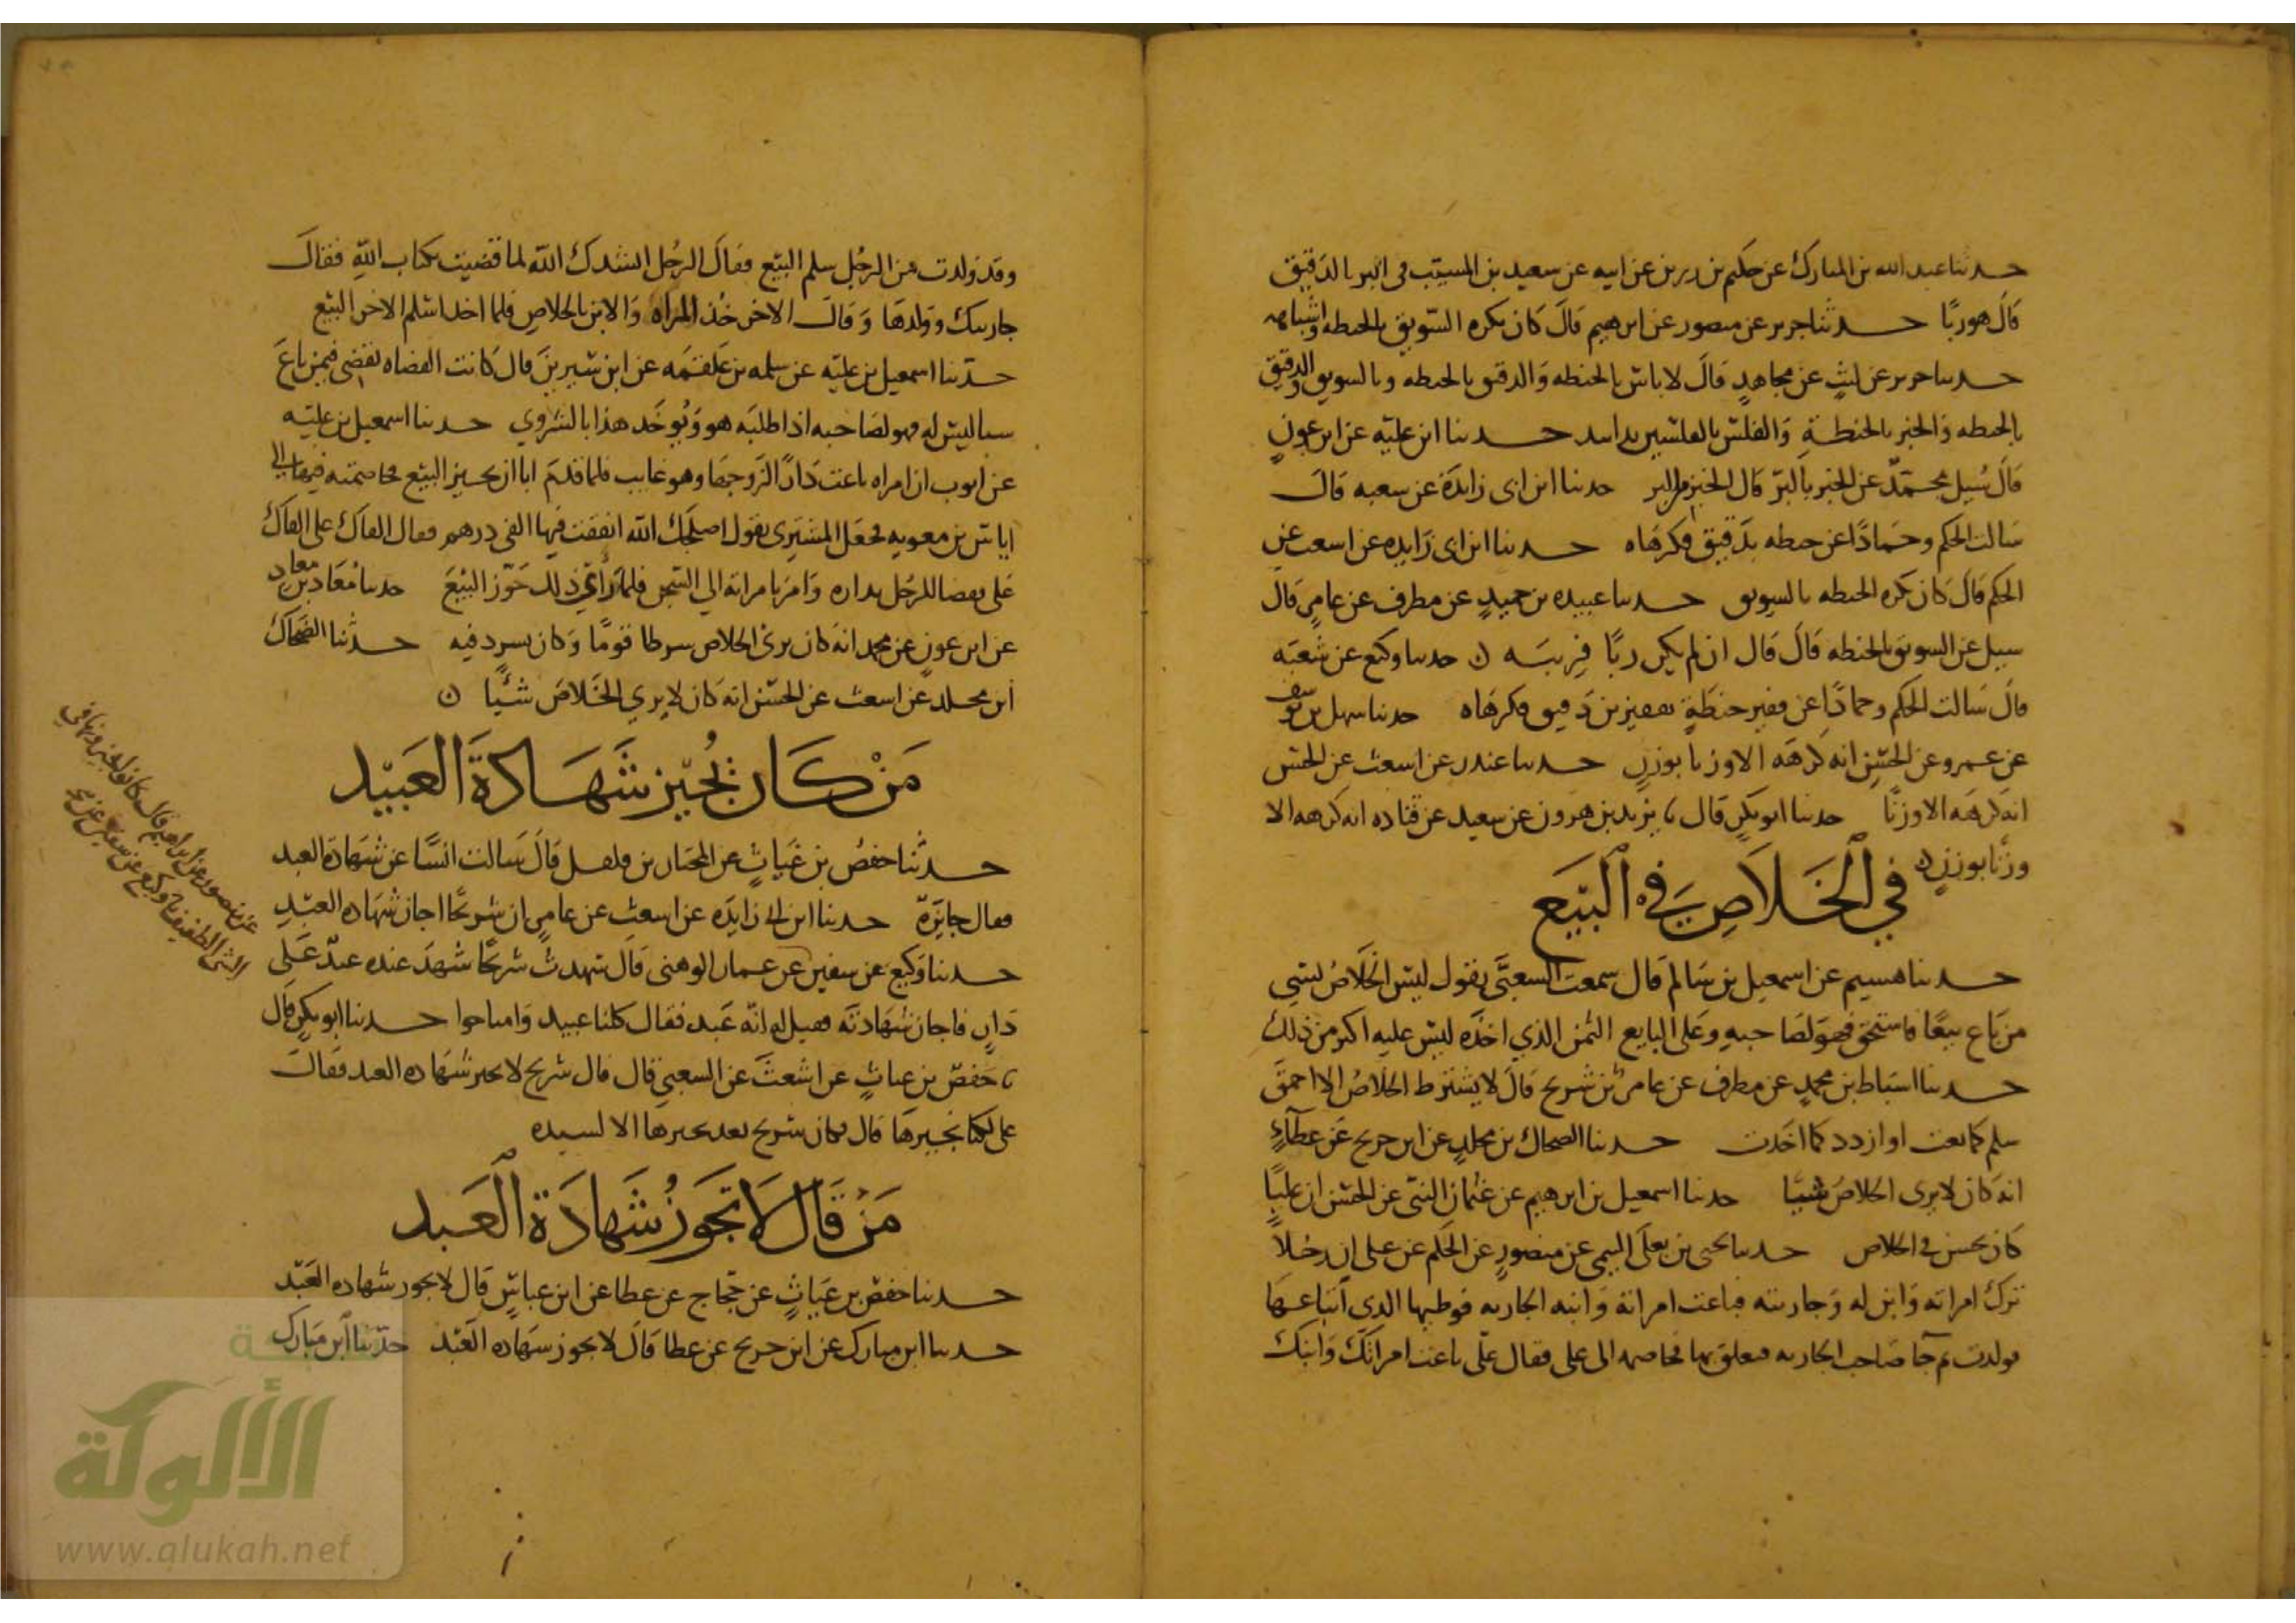 حدثنا عبد الله بن المبارك عن حكيم بن رزين عن ابيه عن سعيد بن المسيب في البر بالدقيق
قال هو ربًا حدثنا جرير عن منصور عن ابرهيم قال كان يكره السويق بالحنطه واشباهه
حدثنا جرير عن ليث عن مجاهد قال لا باس بالحنطه والدقيق بالحنطه وبالسويق والدقيق
بالحنطه والخبز بالحنطة والفلس بالفلسين يدا بيد حدثنا ابن عليه عن ابن عون
قال سُيل محمد عن الخبز بالبر قال الخبز من البر حدثنا ابن ابي زايدة عن شعبه قال
سالت الحكم وحمادًا عن حنطه بدقيق فكرهاه حدثنا ابن ابي زايده عن اشعث عن
الحكم قال كان يكره الحنطه بالسويق حدثنا عبيده بن حميد عن مطرف عن عامر قال
سيل عن السويق بالحنطه قال قال ان لم يكن ربًا فريبَه ن حدثنا وكيع عن شعبَه
قال سالت الحكم وحمادًا عن قفيز حنطةٍ بقفيز من دقيق فكرهاه حدثنا سهل بن يوسف
عن عمرو عن الحسن انه كرهه الا وزنا بوزن حدثنا غندر عن اشعث عن الحسن
انه كرهه الا وزنًا حدثنا ابو بكر قال نا يزيد بن هرون عن سعيد عن قتاده انه كرهه الا
وزنًا بوزن ن
في الخلاص في البيع
حدثنا هشيم عن اسمعيل بن سالم قال سمعت الشعبي يقول ليس الخلاص بشي
من باع بيعًا فاستحق فهو لصاحبه وعلى البايع الثمن الذي اخذه ليس عليه اكثر من ذلك
حدثنا اسباط بن محمدٍ عن مطرف عن عامر عن شريح قال لا يشترط الخلاص الا احمق
سلم كما بعت او ازدد كما اخذت حدثنا الضحاك بن مخلدٍ عن ابن جريج عن عطاءٍ
انه كان لا يرى الخلاص شيًا حدثنا اسمعيل بن ابرهيم عن عثمان البتي عن الحسن ان عليًا
كان يحسن في الخلاص حدثنا يحيى بن يعلى التيمي عن منصور عن الحكم عن علي ان رجلًا
ترك امراته وابن له وجاريته فباعت امراته وابنه الجاريه فوطيها الذي ابتاعها
فولدت ثم جا صاحب الجاريه فتعلق بها فخاصمه الى علي فقال علي باعت امراتك وابنك
وقد ولدت من الرجل سلم البيع فقال الرجل انشدك الله لما قضيت بكتاب الله فقال
جاريتك وولدها وقال الاخر خُذ المراه والابن بالخلاص فلما اخذا سلم الاخر البيع
حدثنا اسمعيل بن عليه عن سلمه بن علقمه عن ابن سيرين قال كانت القضاه تقضي فيمن باع
شيا ليس له فهو لصاحبه اذا طلبه هو ويوخذ هذا بالشروي حدثنا اسمعيل بن عليه
عن ايوب ان امراه باعت دارًا لزوجها وهو غايب فلما قدم ابا ان يجيز البيع فخاصمته فيها الى
اياس بن معويه فجعل المشتري يقول اصلحك الله انفقت فيها الفي درهم فقال الفاك على الفاك
على فقضا للرجل بداره وامر بامراته الى السجن فلما رأى ذلك جوّز البيع حدثنا معاذ بن معاذ
عن ابن عون عن محمد انه كان يرى الخلاص شرطا قومًا وكان يسرد فيه حدثنا الضحاك
ابن مخلد عن اشعث عن الحسن انه كان لا يري الخلاص شئًا ن
مَنْ كان يُجيز شهادة العبيد
حدثنا حفص بن غياث عن المختار بن فلفل قال سالت انسًا عن شهادة العبد
فقال جايزة حدثنا ابن ابي زايده عن اشعث عن عامر ان شريحًا اجاز شهاده العبد
حدثنا وكيع عن سفين عن عمار الدهني قال شهدت شريحًا شهد عنده عبدٌ على
دار فاجاز شهادته فقيل له انه عبد فقال كلنا عبيد وامنا حوا حدثنا ابو بكر قال
نا حفص بن غياث عن اشعث عن الشعبي قال قال شريح لا نجيز شهاده العبد فقال
علي لكنا نجيزها قال فكان شريح بعد يجيزها الا لسيده
مَنْ قال لا تجوز شهادة العبد
حدثنا حفص بن غياثٍ عن حجاج عن عطا عن ابن عباس قال لا يجوز شهاده العبد
حدثنا ابن مبارك عن ابن جريج عن عطا قال لا يجوز شهاده العبد حدثنا ابن مبارك
عن منصور عن ابراهيم قال كانوا يجيزونها في
الشي الطفيف نا وكيع عن سفين عن
الألوكة
www.alukah.net